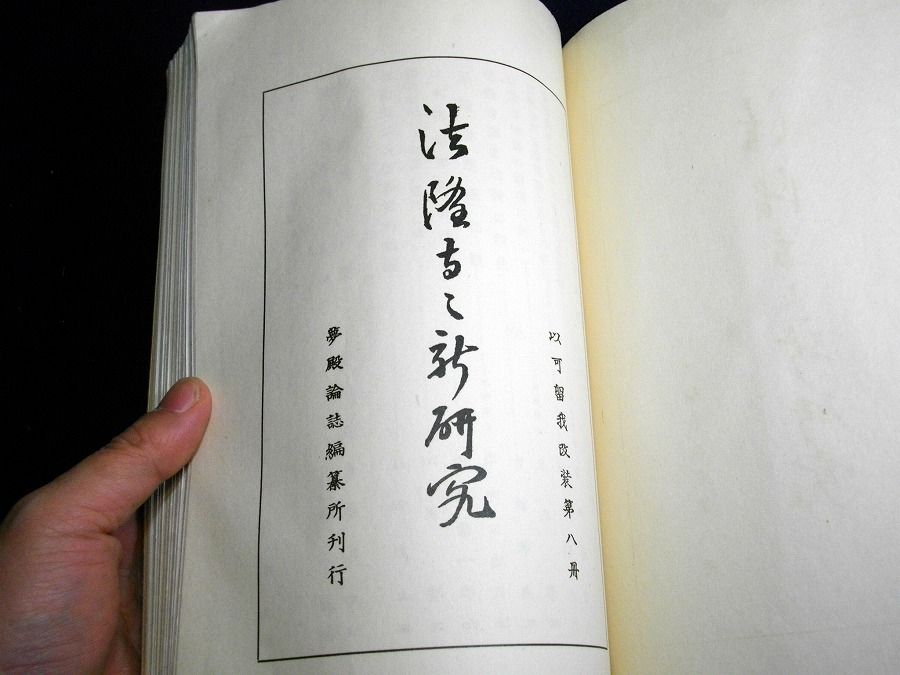 以可留我改裝第八冊
法隆寺之新研究
夢殿論誌編纂所刊行